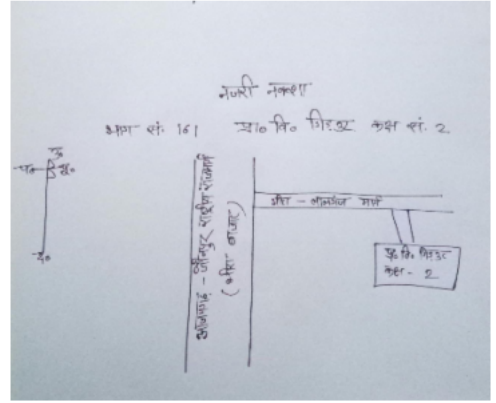 नजरी नक्शा
भाग सं. 161 प्रा० वि० गिरउर कक्ष सं. 2
उ
प० पू०
द०
आजमगढ़ - जौनपुर राष्ट्रीय राजमार्ग
( बाजार )
लालगंज मार्ग
प्रा० वि० गिरउर
कक्ष - 2